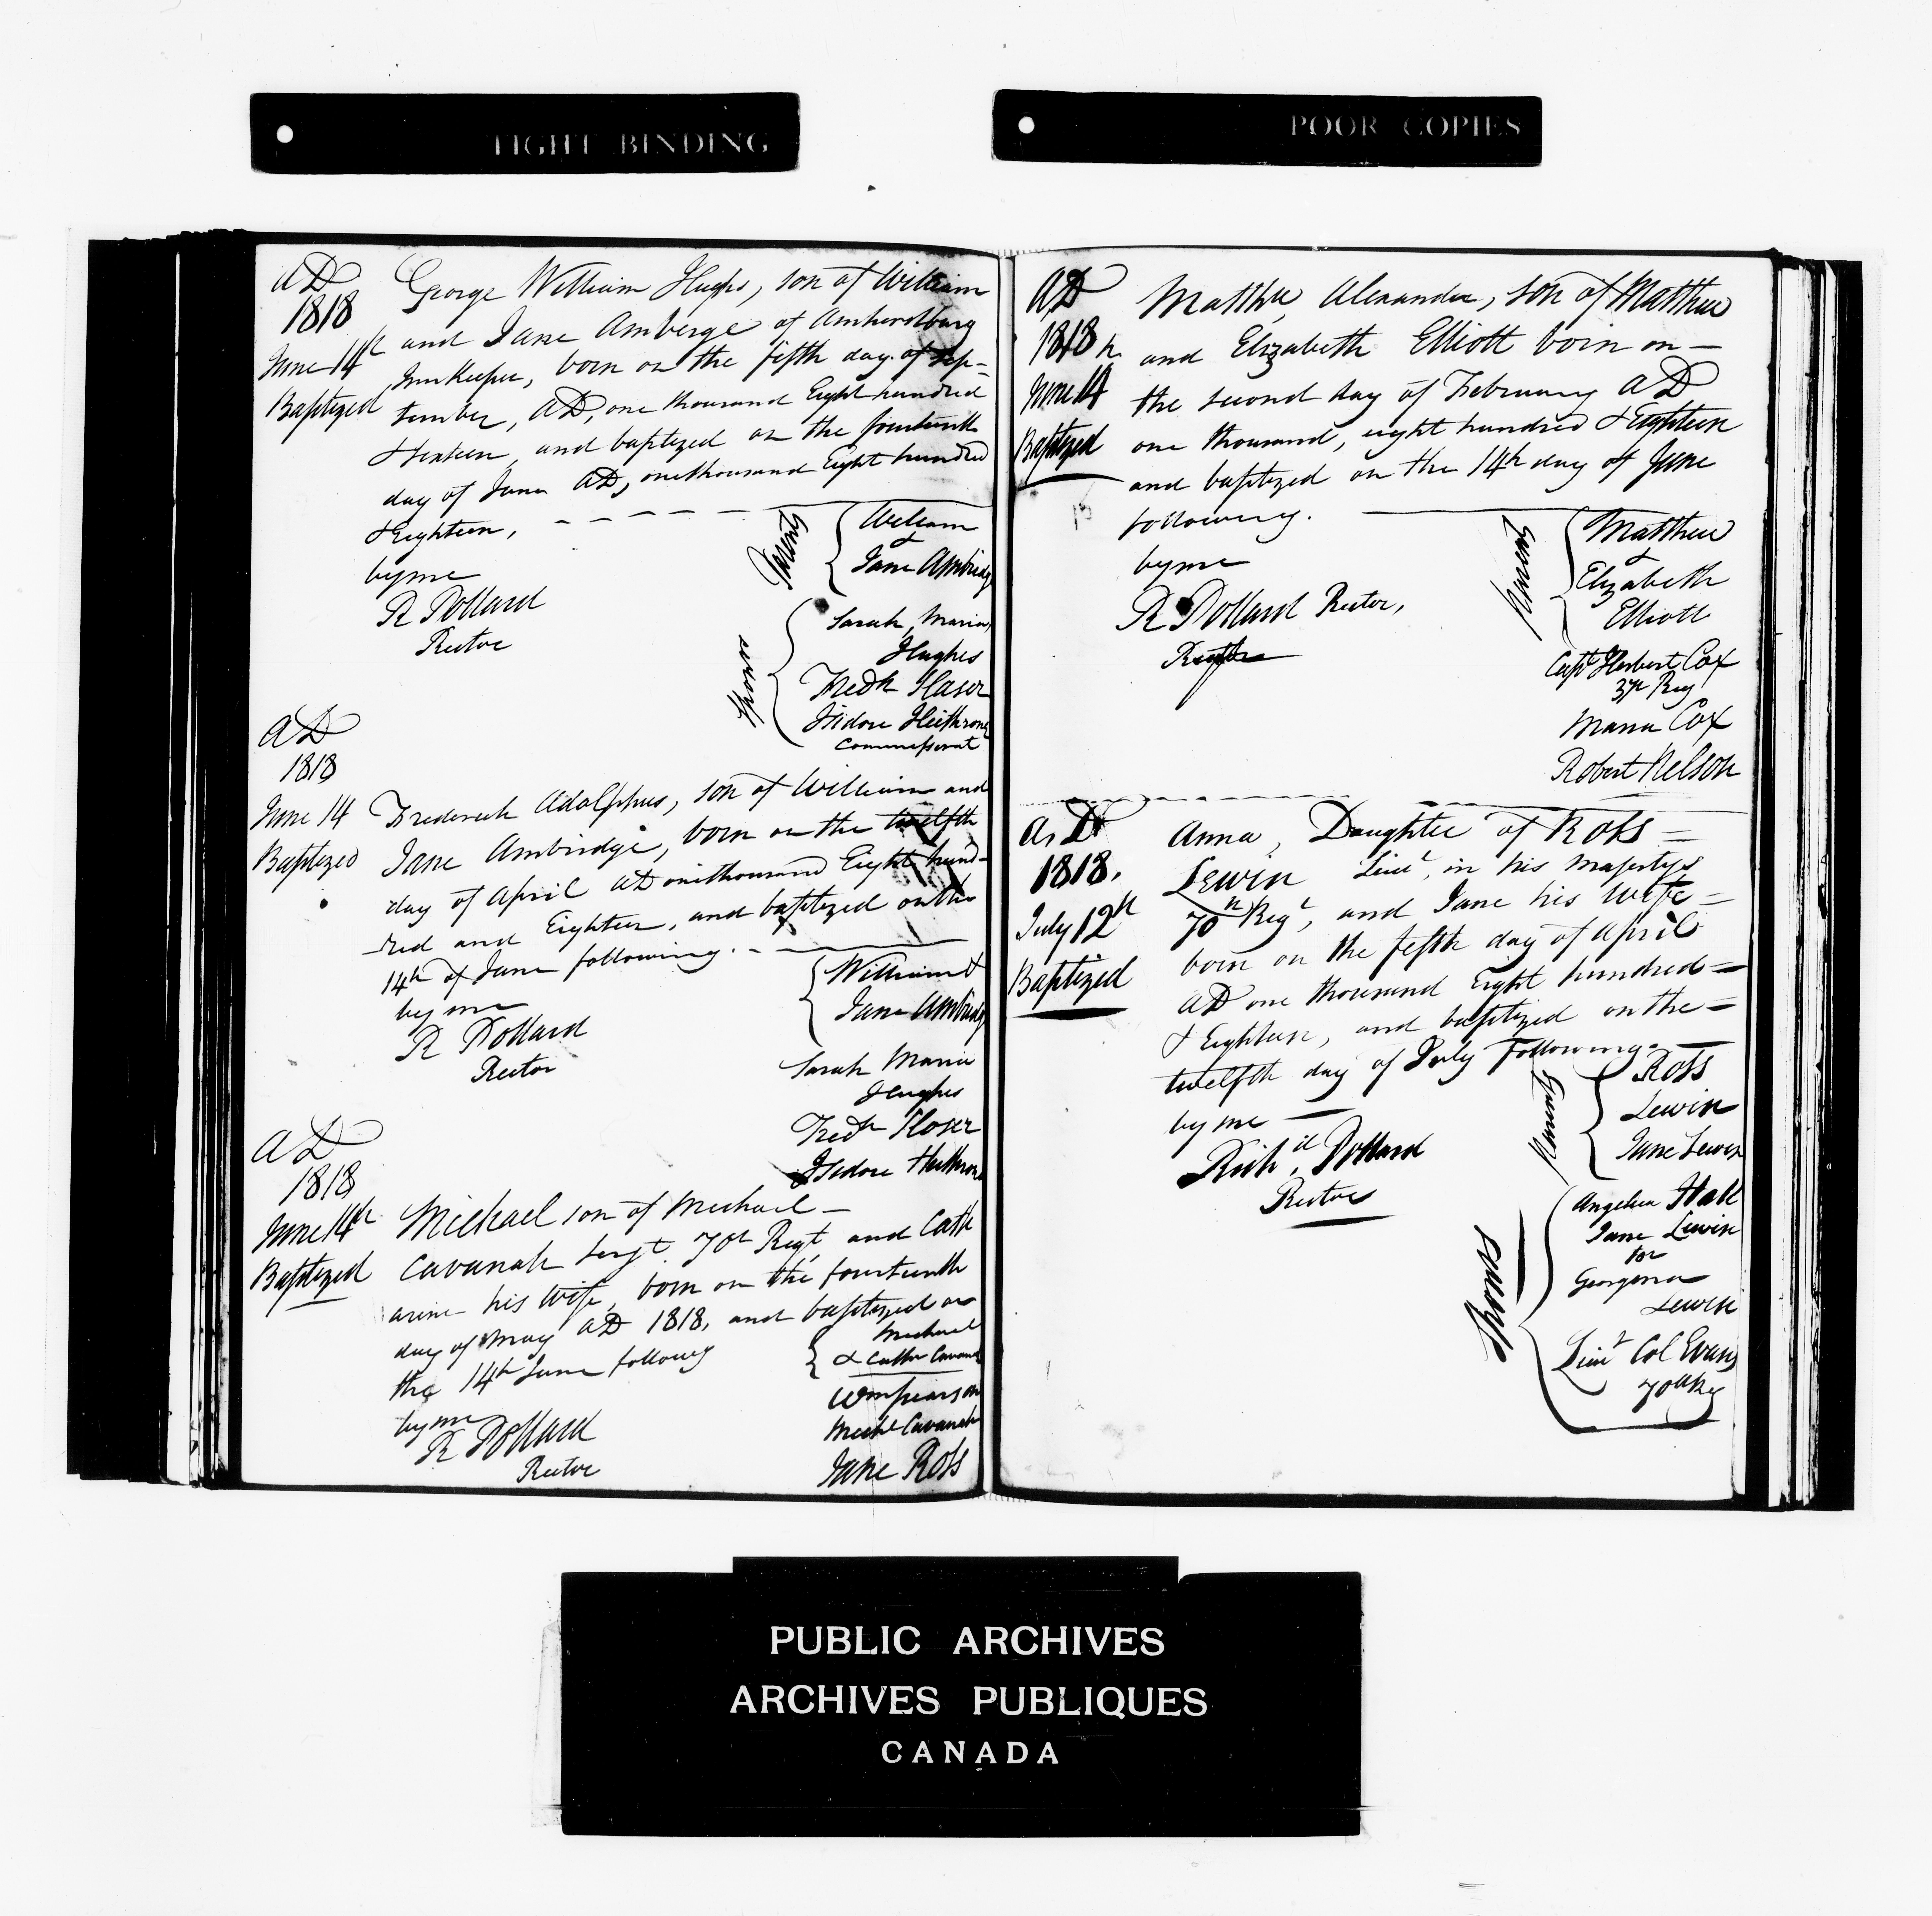 TIGHT BINDING
POOR COPIES
AD
1818
June 14th
Baptized
George William Hughs, son of William
and Jane Amberge of Amherstburg
Innkeeper, born on the fifth day of Sep=
tember, AD, one thousand Eight hundred
& sixteen, and baptized on the fourteenth
day of June AD, one thousand Eight hundred
& Eighteen,
by me
R Pollard
Rector
Parents
William
&
Jane Ambridge
Spons
Sarah, Maria,
Hughes
Fredk
Isidore
Commissariat
AD
1818
June 14
Baptized
Frederick Adolphus, son of William and
Jane Ambridge, born on the twelfth
day of April AD one thousand Eight hund-
-red and Eighteen, and baptized on the
14th of June following.
by me
R Pollard
Rector
William &
Jane Ambridge
Sarah Maria
Hughes
Fredk
Isidore
AD
1818
June 14th
Baptized
Michael son of Michael
Cavanah Sergt 70th Regt, and Cath
arine his Wife, born on the fourteenth
day of May AD 1818, and baptized on
the 14th June following
by me
R Pollard
Rector
Michael
& Cathr Cavanah
Wm Pearson
Michl Cavanah
Jane Ross
AD
1818
June 14th
Baptized
Matthew, Alexander, son of Matthew
and Elizabeth Elliott born on
the second day of February AD
one thousand, eight hundred & Eighteen
and baptized on the 14th day of June
following.
by me
R Pollard Rector,
Parents
Matthew
&
Elizabeth
Elliott
Capt Herbert Cox
37th Reg
Maria Cox
Robert Nelson
AD
1818.
July 12th
Baptized
Anna, Daughter of Ross =
Lewin Lieut, in his Majestys
70th Regt, and Jane his Wife =
born on the fifth day of April
AD one thousand Eight hundred =
& Eighteen, and baptized on the =
twelfth day of July Following.
by me
Richd, Pollard
Rector
Parents
Ross
Lewin
Jane Lewin
Spons
Angelica Hall
Jane Lewin
for
Georgena
Lewin
Lieut Col Evans
70th Rg
PUBLIC ARCHIVES
ARCHIVES PUBLIQUES
CANADA